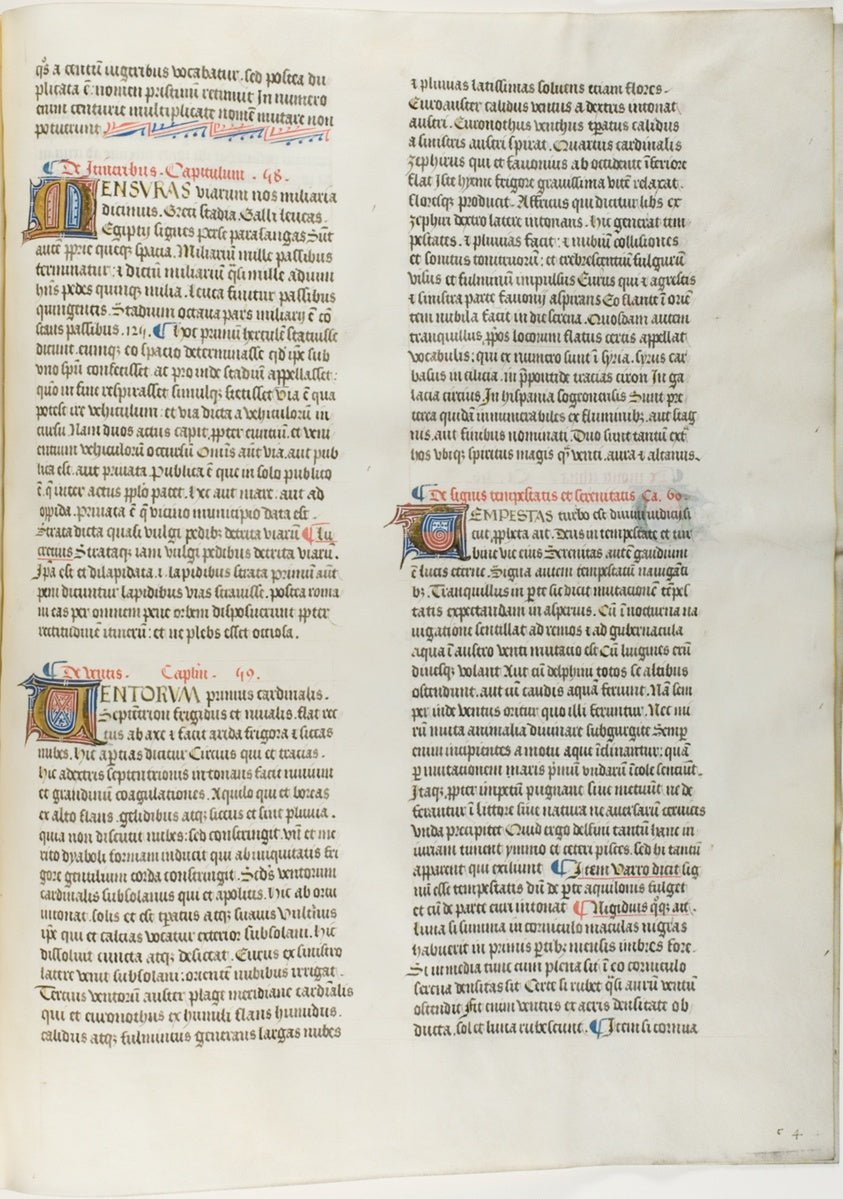 qs̄ a centū iugeribus vocabatur. sed postea du
plicata ē: nomen pristinū retinuit In numero
enim centurie multiplicate nomē mutare non
potuerunt
¶ De Itineribus. Capitulum. 58.
MENSVRAS viarum nos miliaria
dicimus. Greci stadia. Galli leucas.
Egiptij signes perse parasangas Sūt
autē ꝓprie queqꝫ spacia. Miliariū mille passibus
terminatur: ⁊ dictū miliariū q̄si mille adium
hn̄s pedes quinqꝫ milia. Leuca finitur passibus
quingentis. Stadium octaua pars miliarij ē cō
stans passibus. 125. ¶ hoc primū herculē statuisse
dicunt. eumqꝫ eo spacio determinasse qd̓ ip̄e sub
vno sp̄ū confecisset. ac proinde stadiū appellasset:
quō in fine respirasset simulqꝫ stetisset Via ē qua
potest ire vehiculum: et via dicta a vehiculorū in
cursu. Nam duos actus capit ꝓpter euntiū. et veni
entium vehiculorū occursū Omīs aut̄ via. aut pub
lica est. aut priuata. Publica ē que in solo publico
ē. q̄ inter actus ꝓplo patet. hec aut mare. aut ad
oppida. Priuata ē q̄ vicino municipio data est.
Strata dicta quasi vulgi pedibꝫ detrita viarū ¶ Lu
cretius Strataqꝫ iam vulgi pedibus detrita viarū.
Ip̄a est et dilapidata .i. lapidibus strata Primū aūt
peni dicuntur lapidibus vias strauisse. postea roma
ni eas per omnem pene orbem disposuerunt ꝓpter
rectitudinē itinerū: et ne plebs esset occiosa.
¶ De Ventis. Capl̄m. 59.
VENTORVM primus cardinalis.
Septentrion frigidus et niualis. flat rec
tus ab axe ⁊ facit arida frigora ⁊ siccas
nubes. Hic aꝑtias dicitur Circius qui et tracias.
hic adextris septentrionis intonans facit niuium
et grandinū coagulationes. Aquilo qui et boreas
ex alto flans. gelidibus atqꝫ siccus et sine pluuia.
quia non discutit nubes: sed constringit. Vn̄ et me
rito dyaboli formam inducit qui ab iniquitatis fri
gore gentilium corda constringit. Scd̓s ventorum
cardinalis subsolanus qui et apolitis. Hic ab ortu
intonat solis et est tp̄atus atqꝫ suauis Vulturnus
ip̄e qui et calcias vocatur exterior subsolani. Hic
dissoluit cuncta atqꝫ desiccat. Eurus ex sinistro
latere venit subsolani: orientē nubibus irrigat.
Tercius ventorū auster plage meridiane cardīalis
qui et euronothus ex humili flans humidus.
calidus atqꝫ fulmineus generans largas nubes
⁊ pluuias latissimas soluens etiam flores.
Euroauster calidus ventus a dextris intonat
austri. Euronothus venthus tp̄atus calidus
a sinistris austri spirat. Quartus cardinalis
zephirus qui et fauonius ab occidente īteriore
flat Iste hyeme frigore grauissima vitē relaxat.
floresqꝫ producit. Affricus qui dicitur libs ex
zephiri dextro latere intonans. Hic generat tem
pestates. ⁊ pluuias facit: ⁊ nubiū collisiones
et sonitus tonitruorū: et crebrescentiū fulgurū
visus et fulminū impulsus Eurus qui ⁊ agrestis
⁊ sinistra parte fauonij aspirans Eo flante ī oriē
tem nubila facit in die serena. Quosdam autem
tranquillus ꝓpos locorum flatus certis appellat
vocabulis: qui ex numero sunt ī syria. syrus car
basus in cilicia. in ꝓpontide tracias ciron In ga
lacia circius In hispania sogronensis Sunt pre
terea quidā innumerabiles ex fluminibꝫ. aut stag
nis. aut finibus nominati. Duo sunt tantū ext̄
hos vbiqꝫ spiritus magis q̄ꝫ venti. aura ⁊ altanus.
¶ De signis tempestatis et serenitatis Ca. 60.
TEMPESTAS turbo est diuini iudicij si
cut ꝓpheta ait. Deus in tempestate et tur
bine vie eius Serenitas autē gaudium
ē lucis eterne. Signa autem tempestatū nauigāti
bꝫ. Tranquillus in ꝑte sic dicit mutacionē tēpes
tatis expectandam in asperius. Cū ī nocturna na
uigatione scentillat ad remos ⁊ ad gubernacula
aqua ī austro venti mutacio est Cū luigines erū
diuesqꝫ volant Aut cū delphini totos se altibus
ostendunt. aut cū caudis aquā feriunt. Nā sem
per inde ventus oritur quo illi feruntur. Nec mi
rū muta animalia diuinare subgurgite Semꝑ
enim incipientes a motu aque īclinantur: quā
ꝑmutacionem maris p̄mū vndarū īcole senciūt.
Itaqꝫ ꝓpter impetū pugnant siue metuūt ne de
ferantur ī littore siue natura ne auersarū ceruices
vnda precipitet Quid ergo delfini tantū hanc in
iuriam timent ymmo et ceteri pisces. sed hi tantū
apparent qui exiliunt ¶ Item Varro dicit sig
nū esse tempestatis dū de ꝑte aquilonis fulget
et cū de parte euri intonat ¶ Nigidius q̄qꝫ ait.
luna si summa in corniculo maculas nigras
habuerit in primis ꝑtibꝫ mensis imbres fore.
Si in media tunc cum plena sit ī eo corniculo
serena densitas sit Certe si rubet q̄si aurū ventū
ostendit Fit enim ventus ex aeris densitate ob
ducta. sol et luna rubescunt. ¶ Item si cornua
c 4